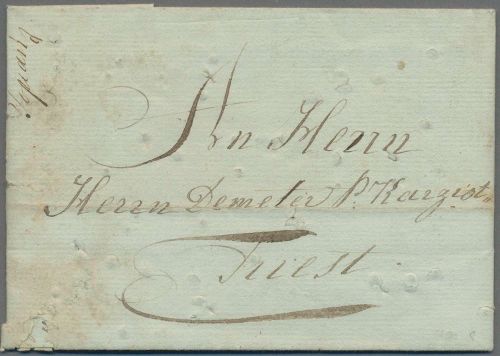 An Herrn
Herrn Demeter P. Kargiot
Triest.